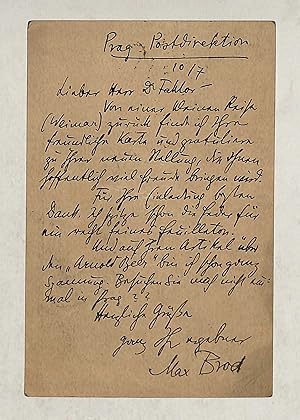 Prag - Postdirektion
10/7
Lieber Herr Dr
Von einer kleinen Reise
(Weimar) zurück finde ich Ihre
freundliche Karte und gratuliere
zu Ihrer neuen Stellung, die Ihnen
hoffentlich viel Freude bringen wird.
Für Ihre Einladung besten
Dank. Ich spitze schon die Feder für
ein recht feines Feuilleton.
Und auf Ihren Artikel über
den „Arnold Beer" bin ich schon ganz
Spannung. Besuchen Sie mich nicht ein-
mal in Prag??
Herzliche Grüße
ganz Ihr ergebener
Max Brod